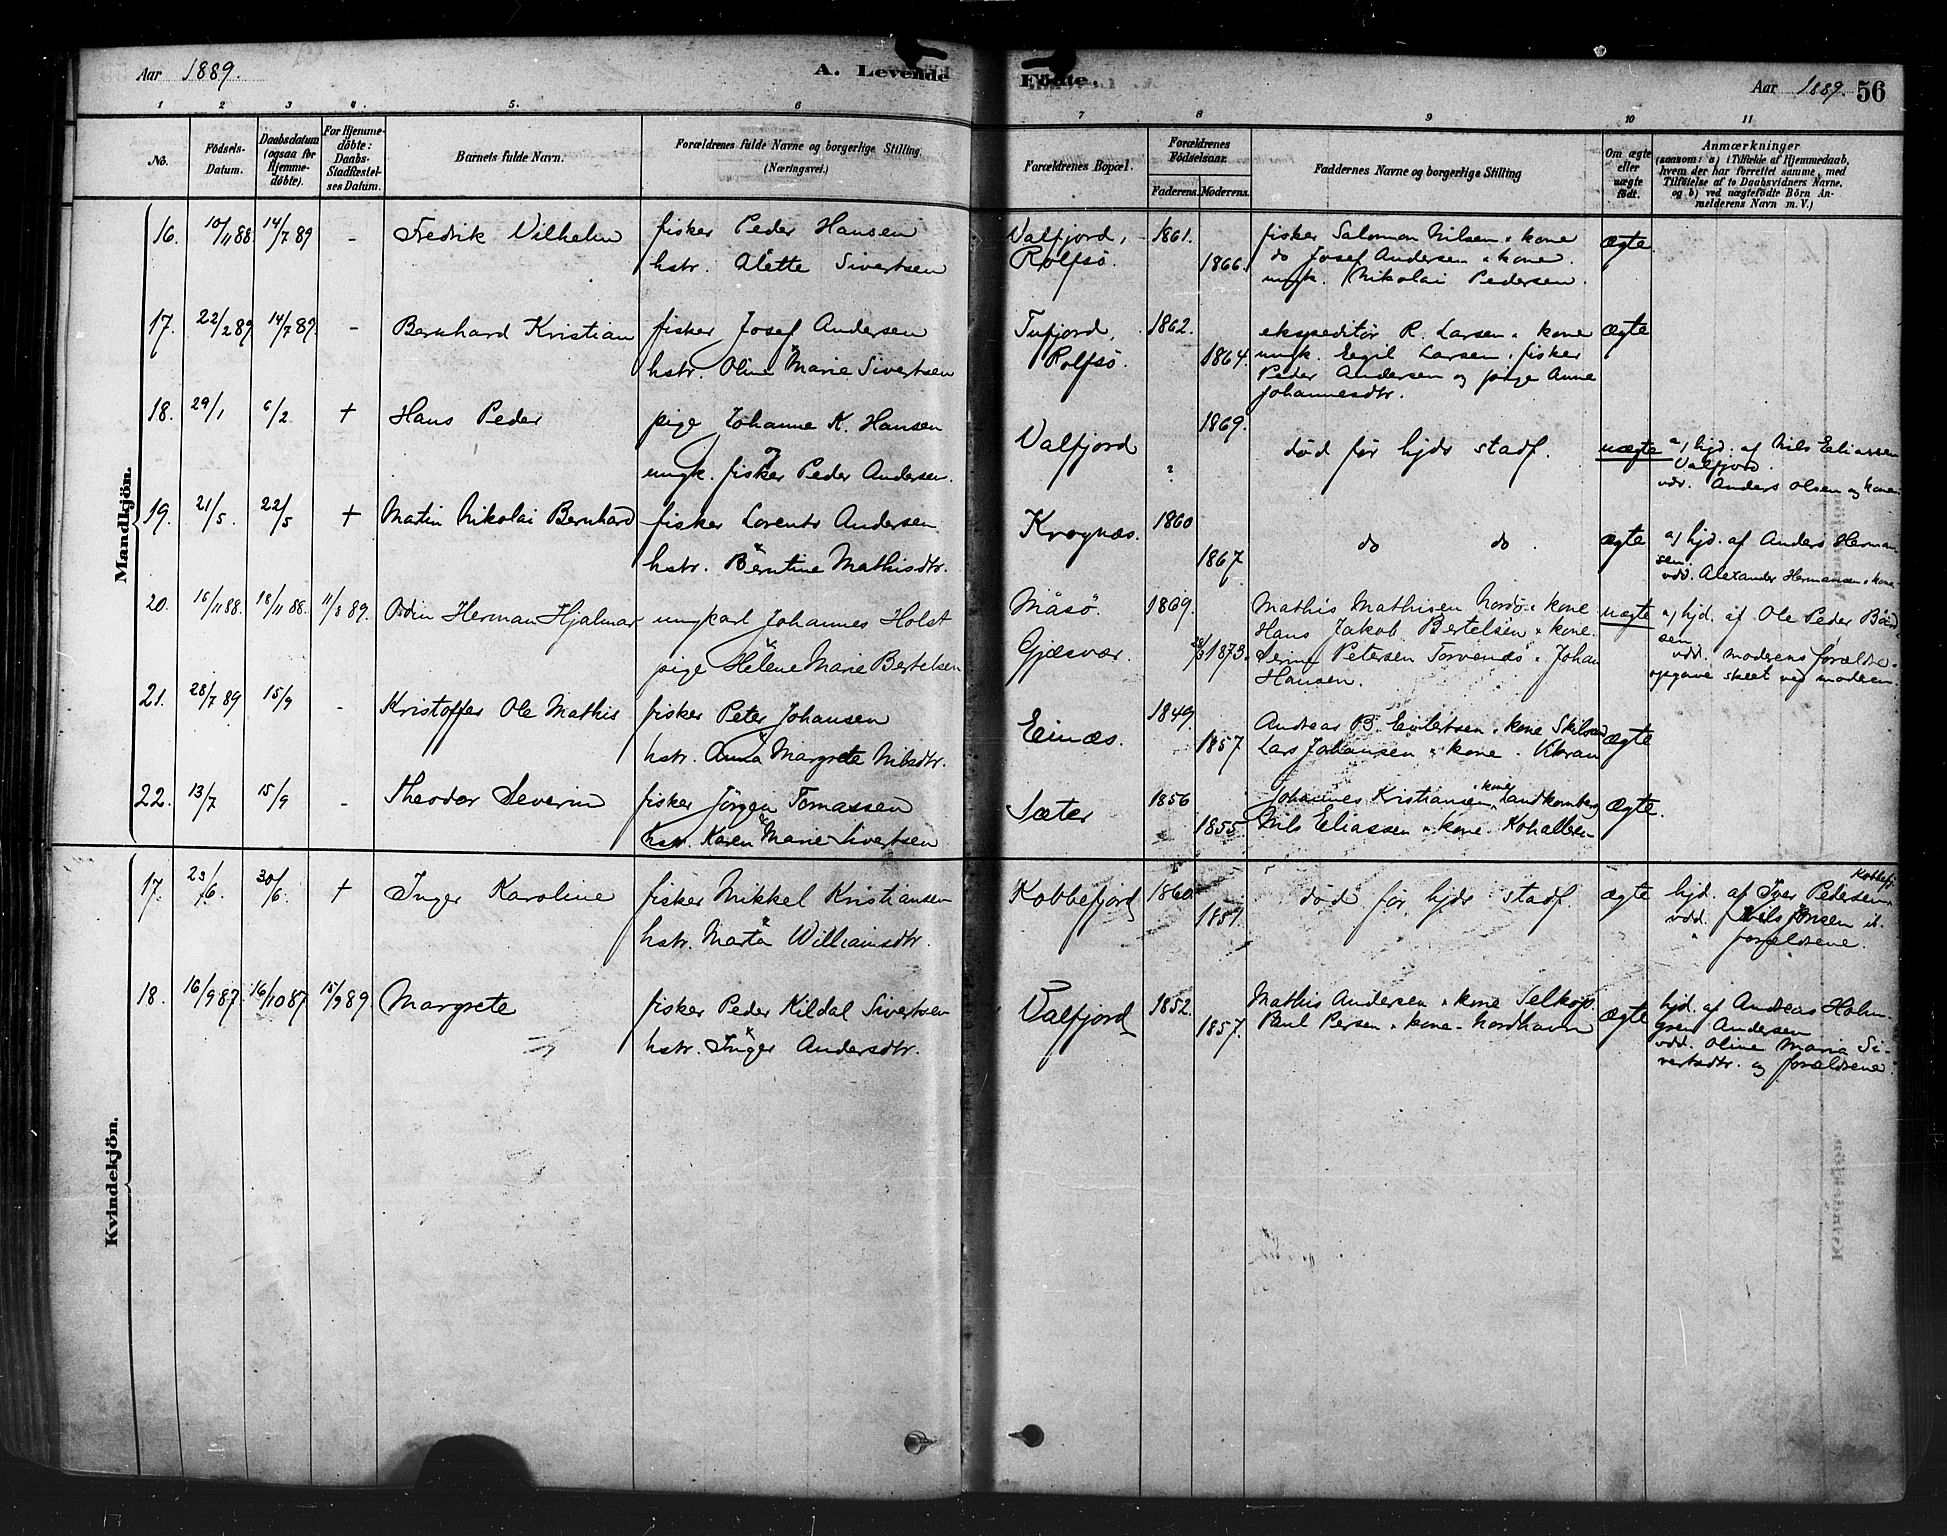 Aar 1889.
A. Levende Födte.
Aar 1889. 56
1 2 3 4. 5. 6 7 8 9 10 11
No.
Födsels-Datum.
Daabsdatum (ogsaa for Hjemme-döbte).
For Hjemme-döbte: Daabs-Stadfæstel-ses Datum.
Barnets fulde Navn.
Forældrenes fulde Navne og borgerlige Stilling. (Næringsvei.)
Forældrenes Bopæl.
Forældrenes Födselsaar.
Faderens. Moderens.
Faddernes Navne og borgerlige Stilling
Om ægte eller uægte födt.
Anmærkninger
(saasom: a) i Tilfælde af Hjemmedaab,
hvem der har forrettet samme, med
Tilföielse af to Daabsvidners Navne.
og b) ved uægtefödte Börn An-
melderens Navn m. V.)
Mandkjön.
16. 10/11 88. 14/7 89 - Fredrik Vilhelm fisker Peder Hansen Valfjord, 1861. fisker Salomon Nilsen " kone ægte
hstr. Alette Sivertsen Rolfsö. 1866. do Josef Andersen " kone.
ungk. Nikolai Pedersen.
17. 22/2 89 14/7 89. - Bernhard Kristian fisker Josef Andersen Tufjord, 1862. ekspeditör R. Larsen " kone ægte
hstr. Oline Marie Sivertsen Rolfsö 1864. ungk. Eegil Larsen, fisker
Peder Andersen og pige Anne
Johannesdtr.
18. 29/1 6/2 + Hans Peder pige Johanne K. Hansen Valfjord 1869. död för hjds stadf. uægte a) hjd. af Nils Eeliassen
og Valfjord.
ungk. fisker Peder Andersen. ? vdr. Anders Olsen og kone.
19. 21/5. 22/5 + Martin Nikolai Bernhard fisker Lorents Andersen Krognæs. 1860 do do. ægte a) hjd. af Anders Herman-
sen.
hstr. Berntine Mathisdtr. 1867. vdd. Alexander Hermansen " kone
20. 15/11 88. 18/11 88. 11/8 89. Odin Herman Hjalmar ungkarl Johannes Holst Måsö. 1869. Mathis Mathisen Nordö " kone uægte a) hjd. af Ole Peder
Hans Jakob Bertelsen " kone. sen
pige Helene Marie Bertelsen Gjæsvær. 1873. Petersen Torvenæs " Johan vdd. moderens forældre.
Hansen. opgave skeet ved moderen.
21. 28/7 89 15/9 - Kristoffer Ole Mathis fisker Peter Johansen Einæs. 1849. Andreas B. Evertsen " kone ægte
hstr. Anna Margrete Nilsdtr. 1857. Lars Johansen " kone.
22. 13/7 15/9 - Theodor Severin fisker Jörgen Tomassen Sæter 1856 Johannes Kristiansen " kone ægte.
hstr. Karen Marie Sivertsen 1855. Nils Eeliassen " kone.
Kvindekjön.
17. 23/6. 30/6. + Inger Karoline fisker Mikkel Kristiansen Kobbefjord 1860. död för hjds stadf. ægte hjd. af Iver Pedersen Kobbefj.
hstr. Marta Williamsdtr. vdd. Nils Jonsen
" forældrene.
18. 16/9 87. 16/10 87. 15/9 89. Margrete fisker Peder Kildal Sivertsen Valfjord 1852. Mathis Andersen " kone Selkop. ægte hjd. af Andreas Holm-
hstr. Inger Andersdtr. 1857. Paul Persen " kone - Nordhavn gren Andersen
vdd. Oline Maria Si-
vertsdtr. og forældrene.